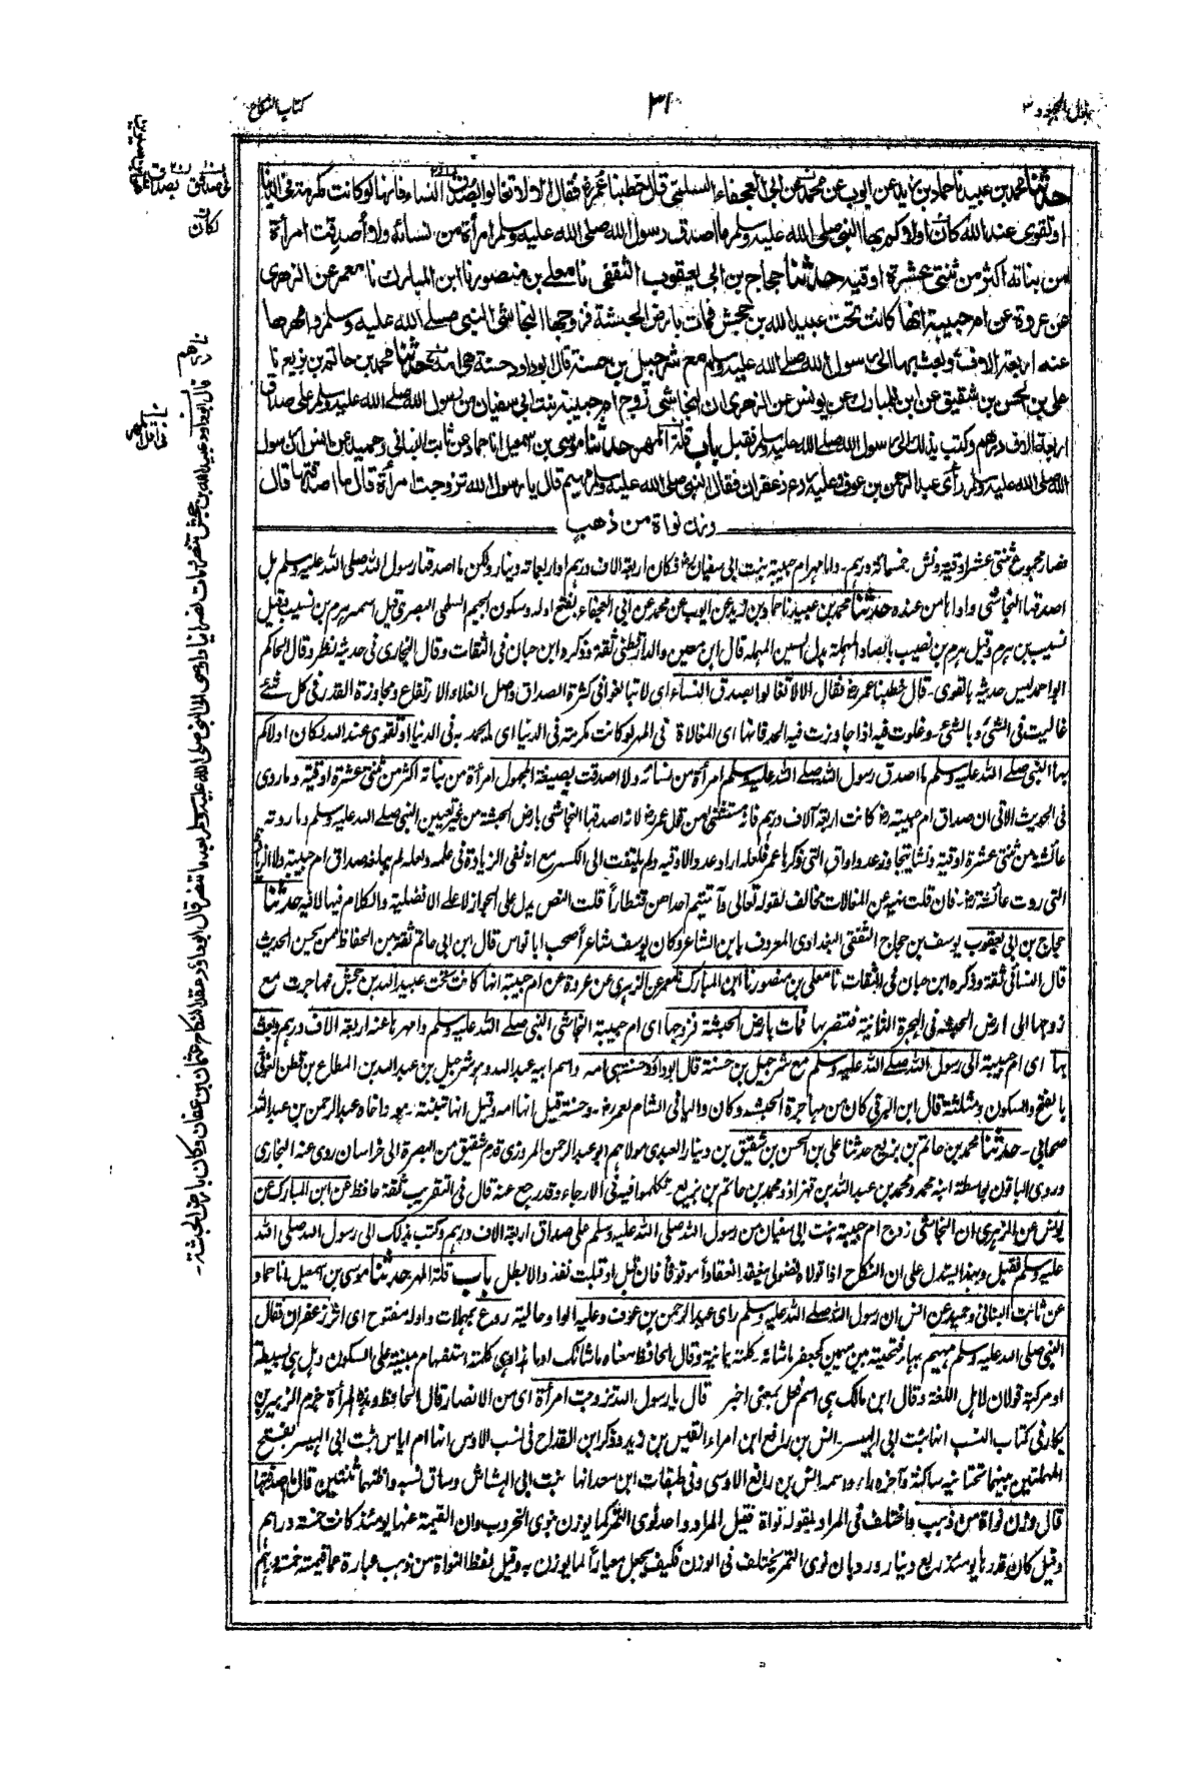 بذل المجهود ٣
٣١
كتاب النكاح
حدثنا محمد بن عبيد نا حماد بن زيد عن ايوب عن محمد عن ابى العجفاء السلمى قال خطبنا عمرؓ فقال الا لا تغالوا بصدق النساء فانها لو كانت مكرمة فى الدنيا
او تقوى عند الله كان اولاكم بها النبى صلى الله عليه وسلم ما اصدق رسول الله صلى الله عليه وسلم امرأة من نسائه ولا أصدقت امرأة
من بناته اكثر من ثنتى عشرة اوقية حدثنا حجاج بن ابى يعقوب الثقفى نا معلى بن منصور نا ابن المبارك نا معمر عن الزهرى
عن عروة عن ام حبيبة انها كانت تحت عبيد الله بن جحش فمات بارض الحبشة فزوجها النجاشى النبى صلى الله عليه وسلم وامهرها
عنه اربعة الاف وبعث بها الى رسول الله صلى الله عليه وسلم مع شرحبيل بن حسنة قال ابو داود حسنة هى امه حدثنا محمد بن حاتم بن بزيع نا
على بن الحسن بن شقيق عن ابن المبارك عن يونس عن الزهرى ان النجاشى زوج ام حبيبة بنت ابى سفيان من رسول الله صلى الله عليه وسلم على صداق
اربعة الاف درهم وكتب بذلك الى رسول الله صلى الله عليه وسلم فقبل باب قلة المهر حدثنا موسى بن اسمعيل انا حماد عن ثابت البنانى وحميد عن انس ان رسول
الله صلى الله عليه وسلم رأى عبد الرحمن بن عوف وعليه ردع زعفران فقال النبى صلى الله عليه وسلم مهيم قال يا رسول الله تزوجت امرأة قال ما اصدقتها قال
وزن نواة من ذهب
فصار مجموع ثنتى عشر اوقية ونش خمسمائة درهم۔ واما مهر ام حبيبة بنت ابى سفيانؓ فكان اربعة الاف درهم او اربعمائة دينار ولكن ما اصدقها رسول الله صلى الله عليه وسلم بل
اصدقها النجاشى واداها من عنده حدثنا محمد بن عبيد نا حماد بن زيد عن ايوب عن محمد عن ابى العجفاء بفتح اوله وسكون الجيم السلمى البصرى قيل اسمه هرم بن نسيب وقيل
نسيب بن هرم وقيل هرم بن نصيب بالصاد المهملة بدل السين المهملة قال ابن معين والدارقطنى ثقة وذكره ابن حبان فى الثقات وقال البخارى فى حديثه نظر وقال الحاكم
ابو احمد ليس حديثه بالقوى۔ قال خطبنا عمرؓ فقال الا لا تغالوا بصدق النساء اى لا تبالغوا فى كثرة الصداق واصل الغلاء الارتفاع ومجاوزة القدر فى كل شئ
غاليت فى الشئ وبالشئ۔ وغلوت فيه اذا جاوزت فيه الحد فانها اى المغالاة فى المهر لو كانت مكرمة فى الدنيا اى ما يحمد به فى الدنيا او تقوى عند الله لكان اولاكم
بها النبى صلى الله عليه وسلم ما اصدق رسول الله صلى الله عليه وسلم امرأة من نسائه ولا اصدقت بصيغة المجهول امرأة من بناته اكثر من ثنتى عشرة اوقية وما روى
فى الحديث الآتى ان صداق ام حبيبة كانت اربعة آلاف درهم فانه مستثنى من قول عمرؓ لانه اصدقها النجاشى بارض الحبشة من غير تعيين النبى صلى الله عليه وسلم وما روته
عائشة من ثنتى عشرة اوقية ونشا فلم يتجاوز عدد اواق التى ذكرها عمر فلعله اراد عدد الاوقية ولم يلتفت الى الكسر مع انه نفى الزيادة فى علمه ولعله لم يبلغه صداق ام حبيبة ولا الزيادة
التى روت عائشةؓ۔ فان قلت نهيه عن المغالات مخالف لقوله تعالى وآتيتم احداهن قنطاراً قلت النص يدل على الجواز لا على الافضلية والكلام فيها لا فيه حدثنا
حجاج بن ابى يعقوب يوسف بن حجاج الثقفى البغدادى المعروف بابن الشاعر وكان يوسف شاعراً صحب ابا نواس قال ابن ابى حاتم ثقة من الحفاظ ممن يحسن الحديث
قال النسائى ثقة وذكره ابن حبان فى الثقات نا معلى بن منصور نا ابن المبارك نا معمر عن الزهرى عن عروة عن ام حبيبة انها كانت تحت عبيد الله بن جحش فهاجرت مع
زوجها الى ارض الحبشة فى الهجرة الثانية فتنصر بها فمات بارض الحبشة فزوجها اى ام حبيبة النجاشى النبى صلى الله عليه وسلم وامهرها عنه اربعة الاف درهم وبعث
بها اى ام حبيبة الى رسول الله صلى الله عليه وسلم مع شرحبيل بن حسنة قال ابو داؤد حسنة هى امه واسم ابيه عبد الله وهو شرحبيل بن عبد الله بن المطاع بن قطن الغوثى
بالفتح والسكون ومثلثة قال ابن البرقى كان من مهاجرة الحبشة وكان واليا فى الشام لعمرؓ۔ وحسنة قيل انها امه وقيل انها تبنته۔ واخاه عبد الرحمن بن عبد الله
صحابى۔ حدثنا محمد بن حاتم بن بزيع حدثنا على بن الحسن بن شقيق بن دينار العبدى مولاهم ابو عبد الرحمن المروزى قدم شقيق من البصرة الى خراسان روى عنه البخارى
وروى الباقون بواسطة ابنه محمد ومحمد بن عبد الله بن قهزاذ ومحمد بن حاتم بن بزيع۔ تكلموا فيه فى الارجاء وقد رجع عنه قال فى التقريب ثقة حافظ عن ابن المبارك عن
يونس عن الزهرى ان النجاشى زوج ام حبيبة بنت ابى سفيان من رسول الله صلى الله عليه وسلم على صداق اربعة الاف درهم وكتب بذلك الى رسول الله صلى الله
عليه وسلم فقبل وبهذا يستدل على ان النكاح اذا تولاه فضولى ينعقد انعقاداً موقوفاً فان قبل او قبلت نفذ والا بطل باب قلة المهر حدثنا موسى بن اسمعيل انا حماد
عن ثابت البنانى وحميد عن انس ان رسول الله صلى الله عليه وسلم راى عبد الرحمن بن عوف وعليه الواو حالية ردع بمهملات واوله مفتوح اى اثر زعفران فقال
النبى صلى الله عليه وسلم مهيم بهاء فتحتية بين ميمين كجعفر ما شانه۔ كلمة يمانية وقال الحافظ معناه ما شانك او ما هذا وهى كلمة استفهام مبنية على السكون وهل هى بسيطة
او مركبة قولان لاهل اللغة وقال ابن مالك هى اسم فعل بمعنى اخبر قال يا رسول الله تزوجت امرأة اى من الانصار قال الحافظ وهذه المرأة جزم الزبير بن
بكار فى كتاب النسب انها بنت ابى الحيسر۔ انس بن رافع ابن امراء القيس بن زيد وذكر ابن القداح فى نسب الاوس انها ام اياس بنت ابى الحيسر بفتح
المهملتين بينهما تحتانية ساكنة وآخره راء واسمه انس بن رافع الاوسى وفى طبقات ابن سعد انها بنت ابى الحشاش وساق نسبه واظنهما ثنتين قال ما اصدقتها
قال وزن نواة من ذهب واختلف فى المراد بقوله نواة فقيل المراد واحد نوى التمر كما يوزن بنوى الخروب وان القيمة عنها يومئذ كانت خمسة دراهم
وقيل كان قدرها يومئذ ربع دينار ورد بان نوى التمر يختلف فى الوزن فكيف يجعل معياراً لما يوزن به وقيل لفظ النواة من ذهب عبارة عما قيمته خمسة دراهم
لكان
نا درهم
قال ابو داود عبيد الله بن جحش تنصر ومات نصرانيا واوصى الى النبى صلى الله عليه وسلم بعد ما تنصر قال ابو داؤد عقد النكاح عثمان بن عفان وكان بارض الحبشة۔